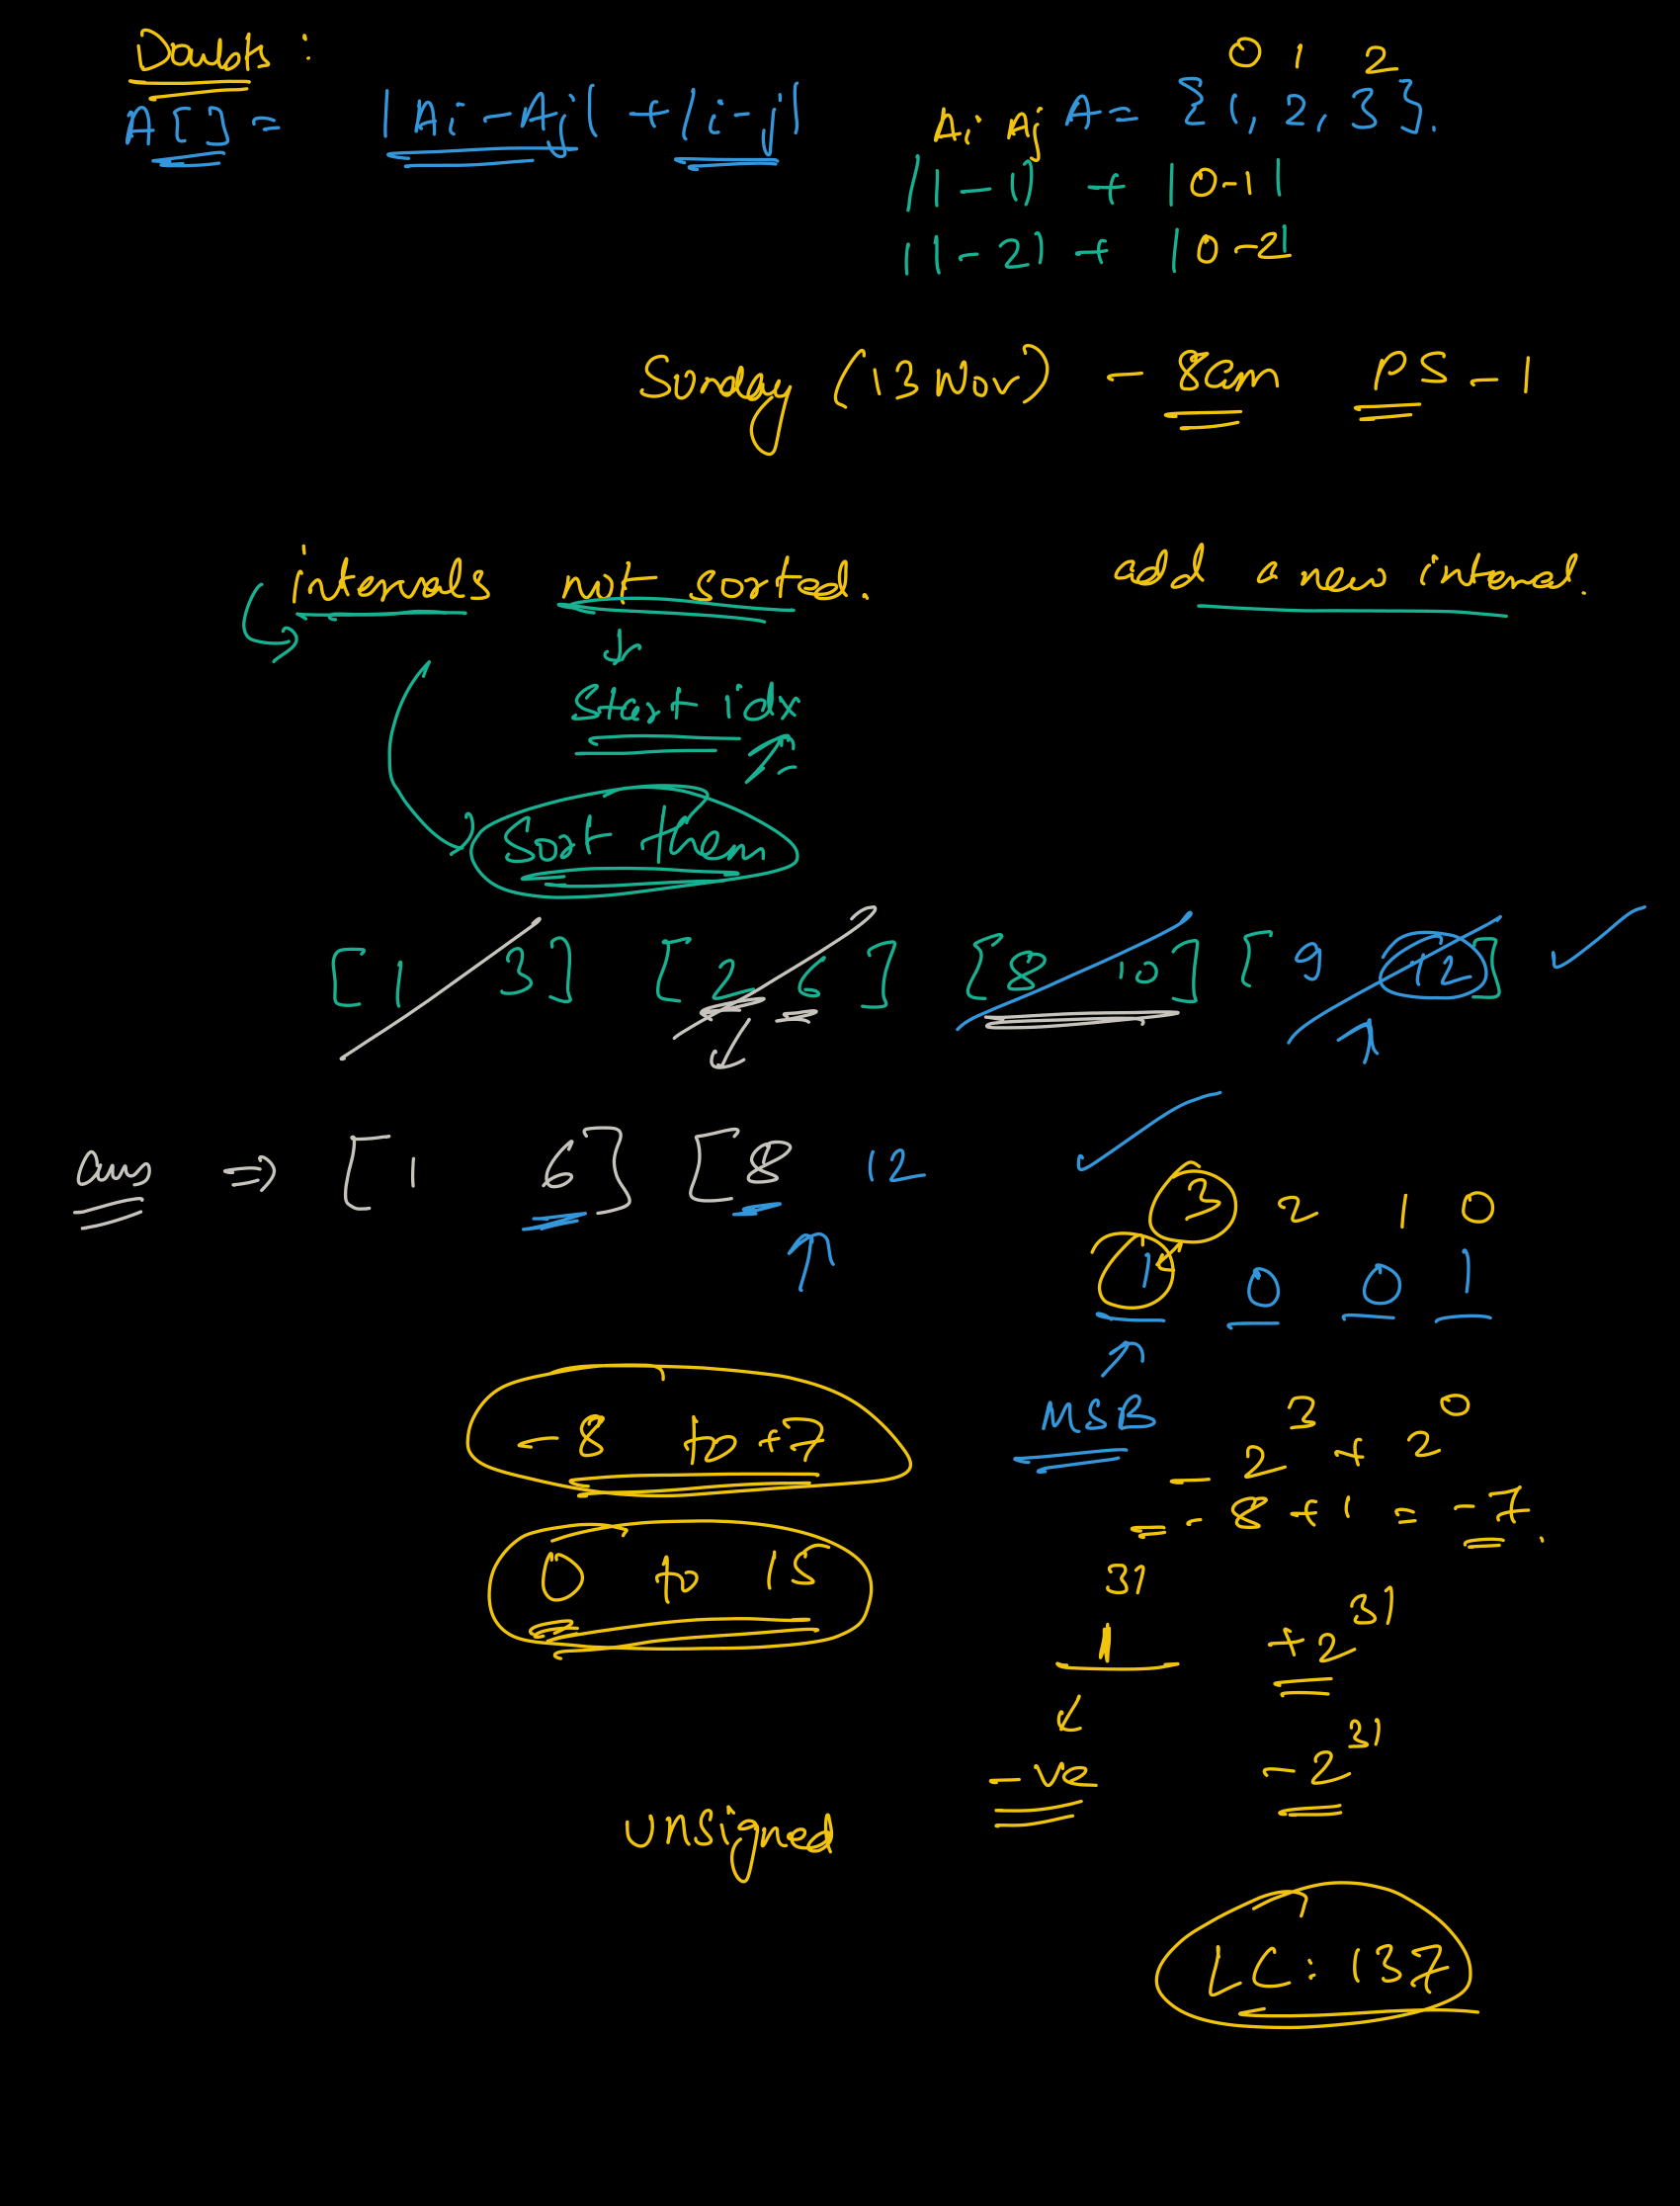 Doubts :
0 1 2
A[] = |Ai - Aj| + |i-j|
Ai Aj A = {1, 2, 3}.
|1-1| + |0-1|
|1-2| + |0-2|
Sunday (13 Nov) - 8am PS-1
intervals not sorted. add a new interval.
start idx
sort them
[1 3] [2 6] [8 10] [9 12]
ans ⇒ [1 6] [8 12
3 2 1 0
1 0 0 1
MSB
-8 to +7
-2^3 + 2^0
= -8 + 1 = -7.
0 to 15
31
1 +2^31
-ve -2^31
unsigned
LC: 137